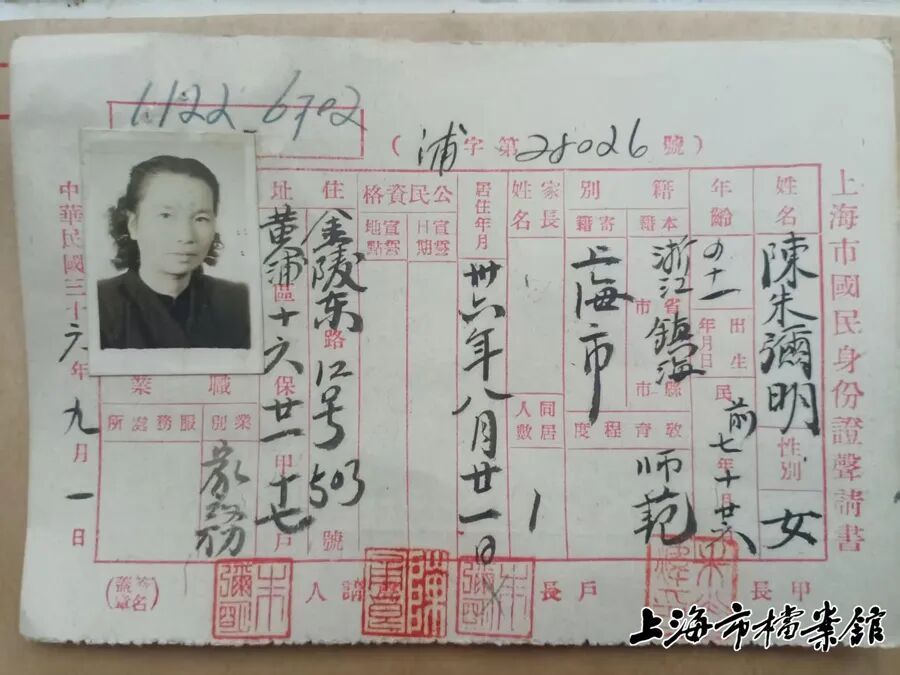 1122 6702
(浦字第28026號)
上海市國民身份證聲請書
姓名 陳朱彌明 性別 女
年齡 四十一 出生年月日 民前七年十月廿六
籍別 本籍 浙江省市鎮海縣市
寄籍 上海市
教育程度 师范
家長姓名
同居人數 1
居住年月 卅六年八月廿一日
公民資格 宣誓日期
宣誓地點
住址 金陵东路12号503號
黄浦區十六保廿一甲十七戶
職業 業別 家務
服務處所
中華民國三十六年九月一日
甲長
戶長
聲請人
(簽名蓋章)
朱彌明
上海市檔案館